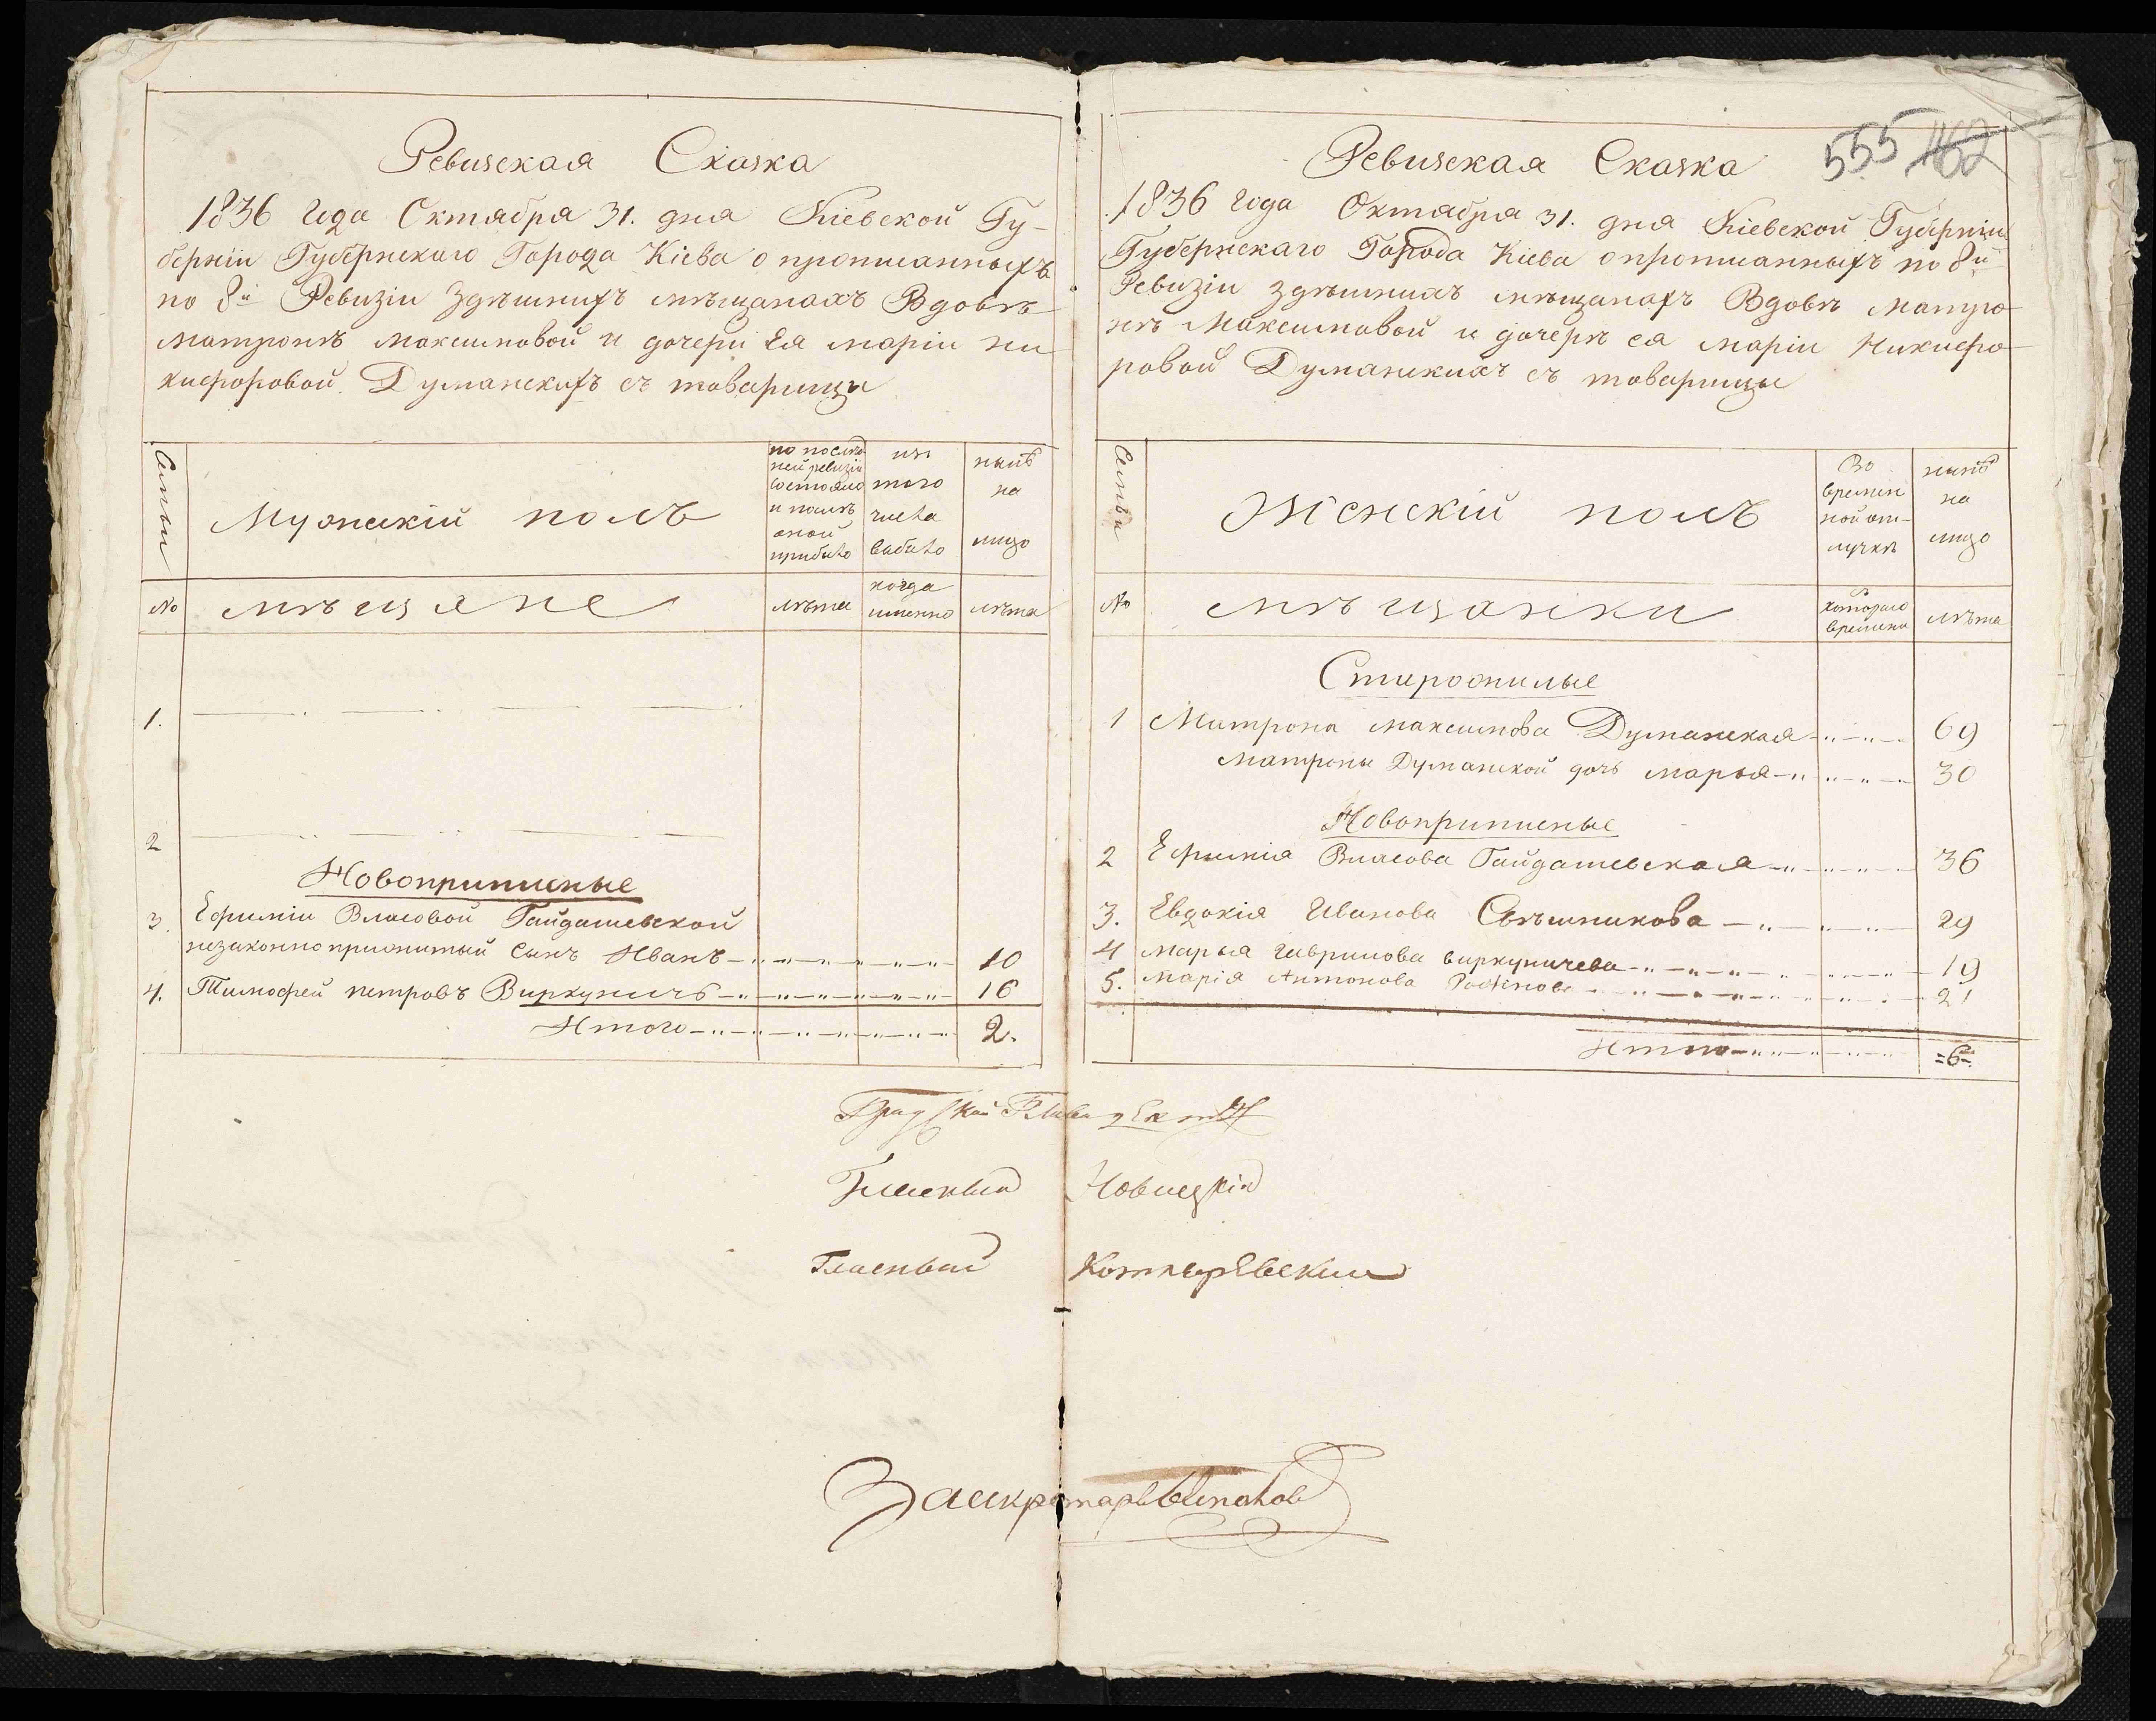 Ревизская Сказка
1836 года Октября 31. дня Кіевской Гу-
берніи Губернскаго Города Кіева о прописанныхъ
по 8й Ревизіи Здѣшнихъ мѣщанахъ Вдовѣ
матронѣ максимовой и дочери Ея маріи ни
кифоровой Думанскихъ съ товарищи
Семьи
Мужескій полъ
по послѣд
ней ревизіи
состояло
и послѣ
оной
прибыло
изъ
того
числа
выбыло
нынѣ
на
лицо
№
мѣщане
лѣта
когда
именно
лѣта
1.
2
Новоприписные
3. Ефиміи Власовой Гайдашевской
незаконноприжитый Сынъ Иванъ 10
4. Тимофей петровъ Виркуничъ 16
Итого 2.
555 1162
Ревизская Сказка
1836 года Октября 31. дня Кіевской Губерніи
Губернскаго Города Кіева о прописанныхъ по 8й
Ревизіи здѣшнихъ мѣщанахъ Вдовѣ матро-
нѣ Максимовой и дочерѣ ея маріи Никифо-
ровой Думанскихъ съ товарищи
Семьи
Женскій полъ
Во
времен
ной от-
лучкѣ
нынѣ
на
лицо
№
мѣщанки
с
котораго
времени
лѣта
Старожилые
1 Матрона максимова Думанская 69
Матроны Думанской дочь марья 30
Новоприписные
2 Ефимія Власова Гайдашевская 36
3. Евдокія Иванова Свѣшникова 29
4 Марья гаврилова виркуничева 19
5. марія Антонова 21
Итого =6=
Градской Глава
Гласный Новицкій
Гласный Котляревский
За секретаря